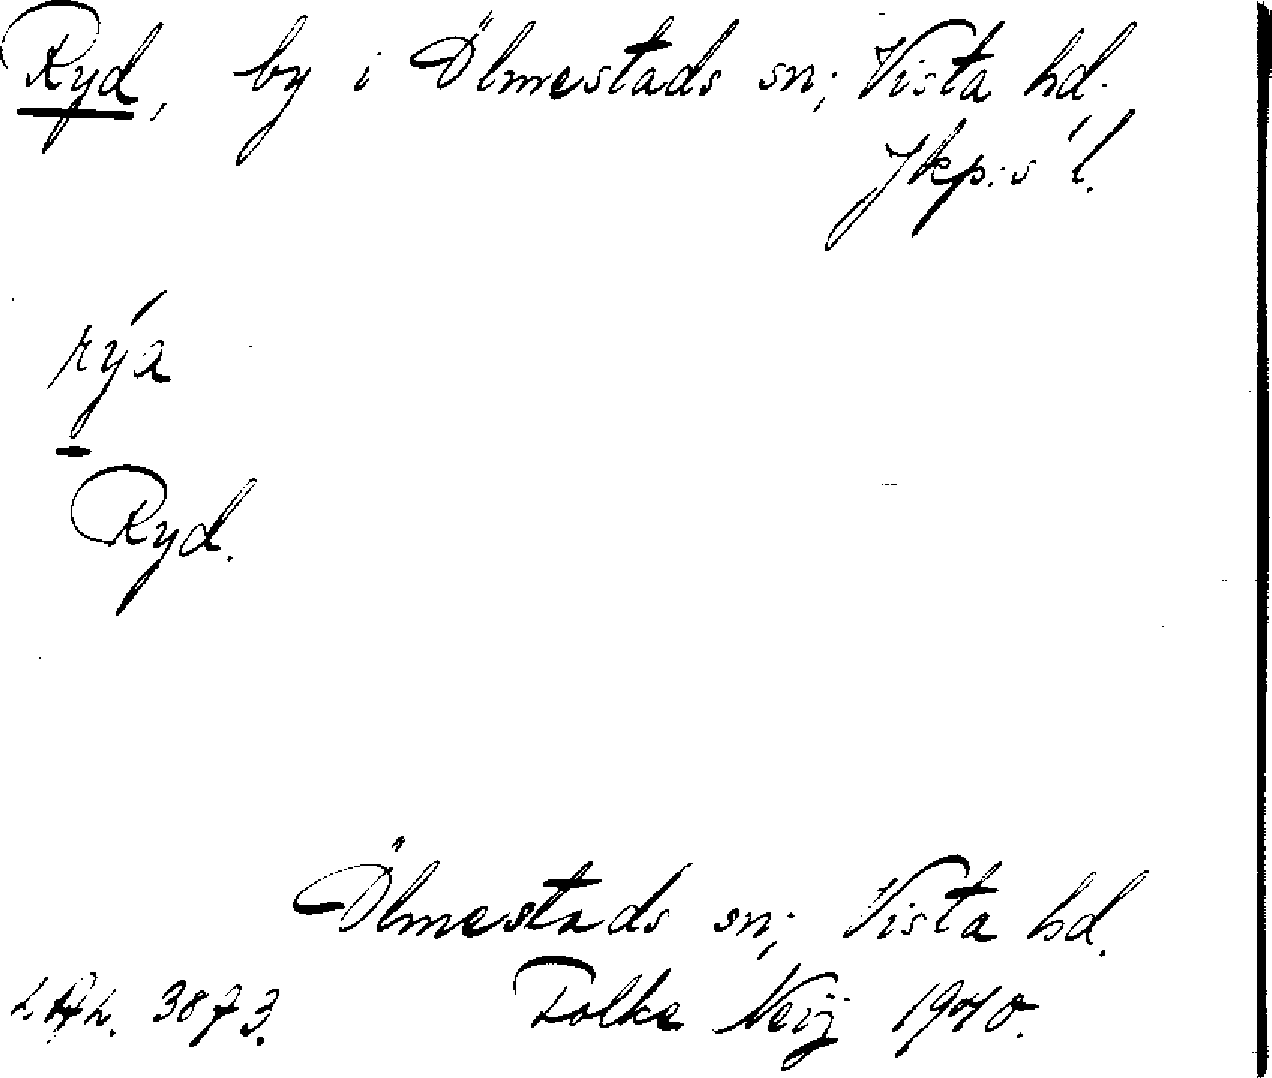 Ryd, by i Ölmestads sn; Vista hd.,
Jkp:s l.
rýa
Ryd.
Ölmestads sn; Vista hd.
3873. Folke Neij 1940.